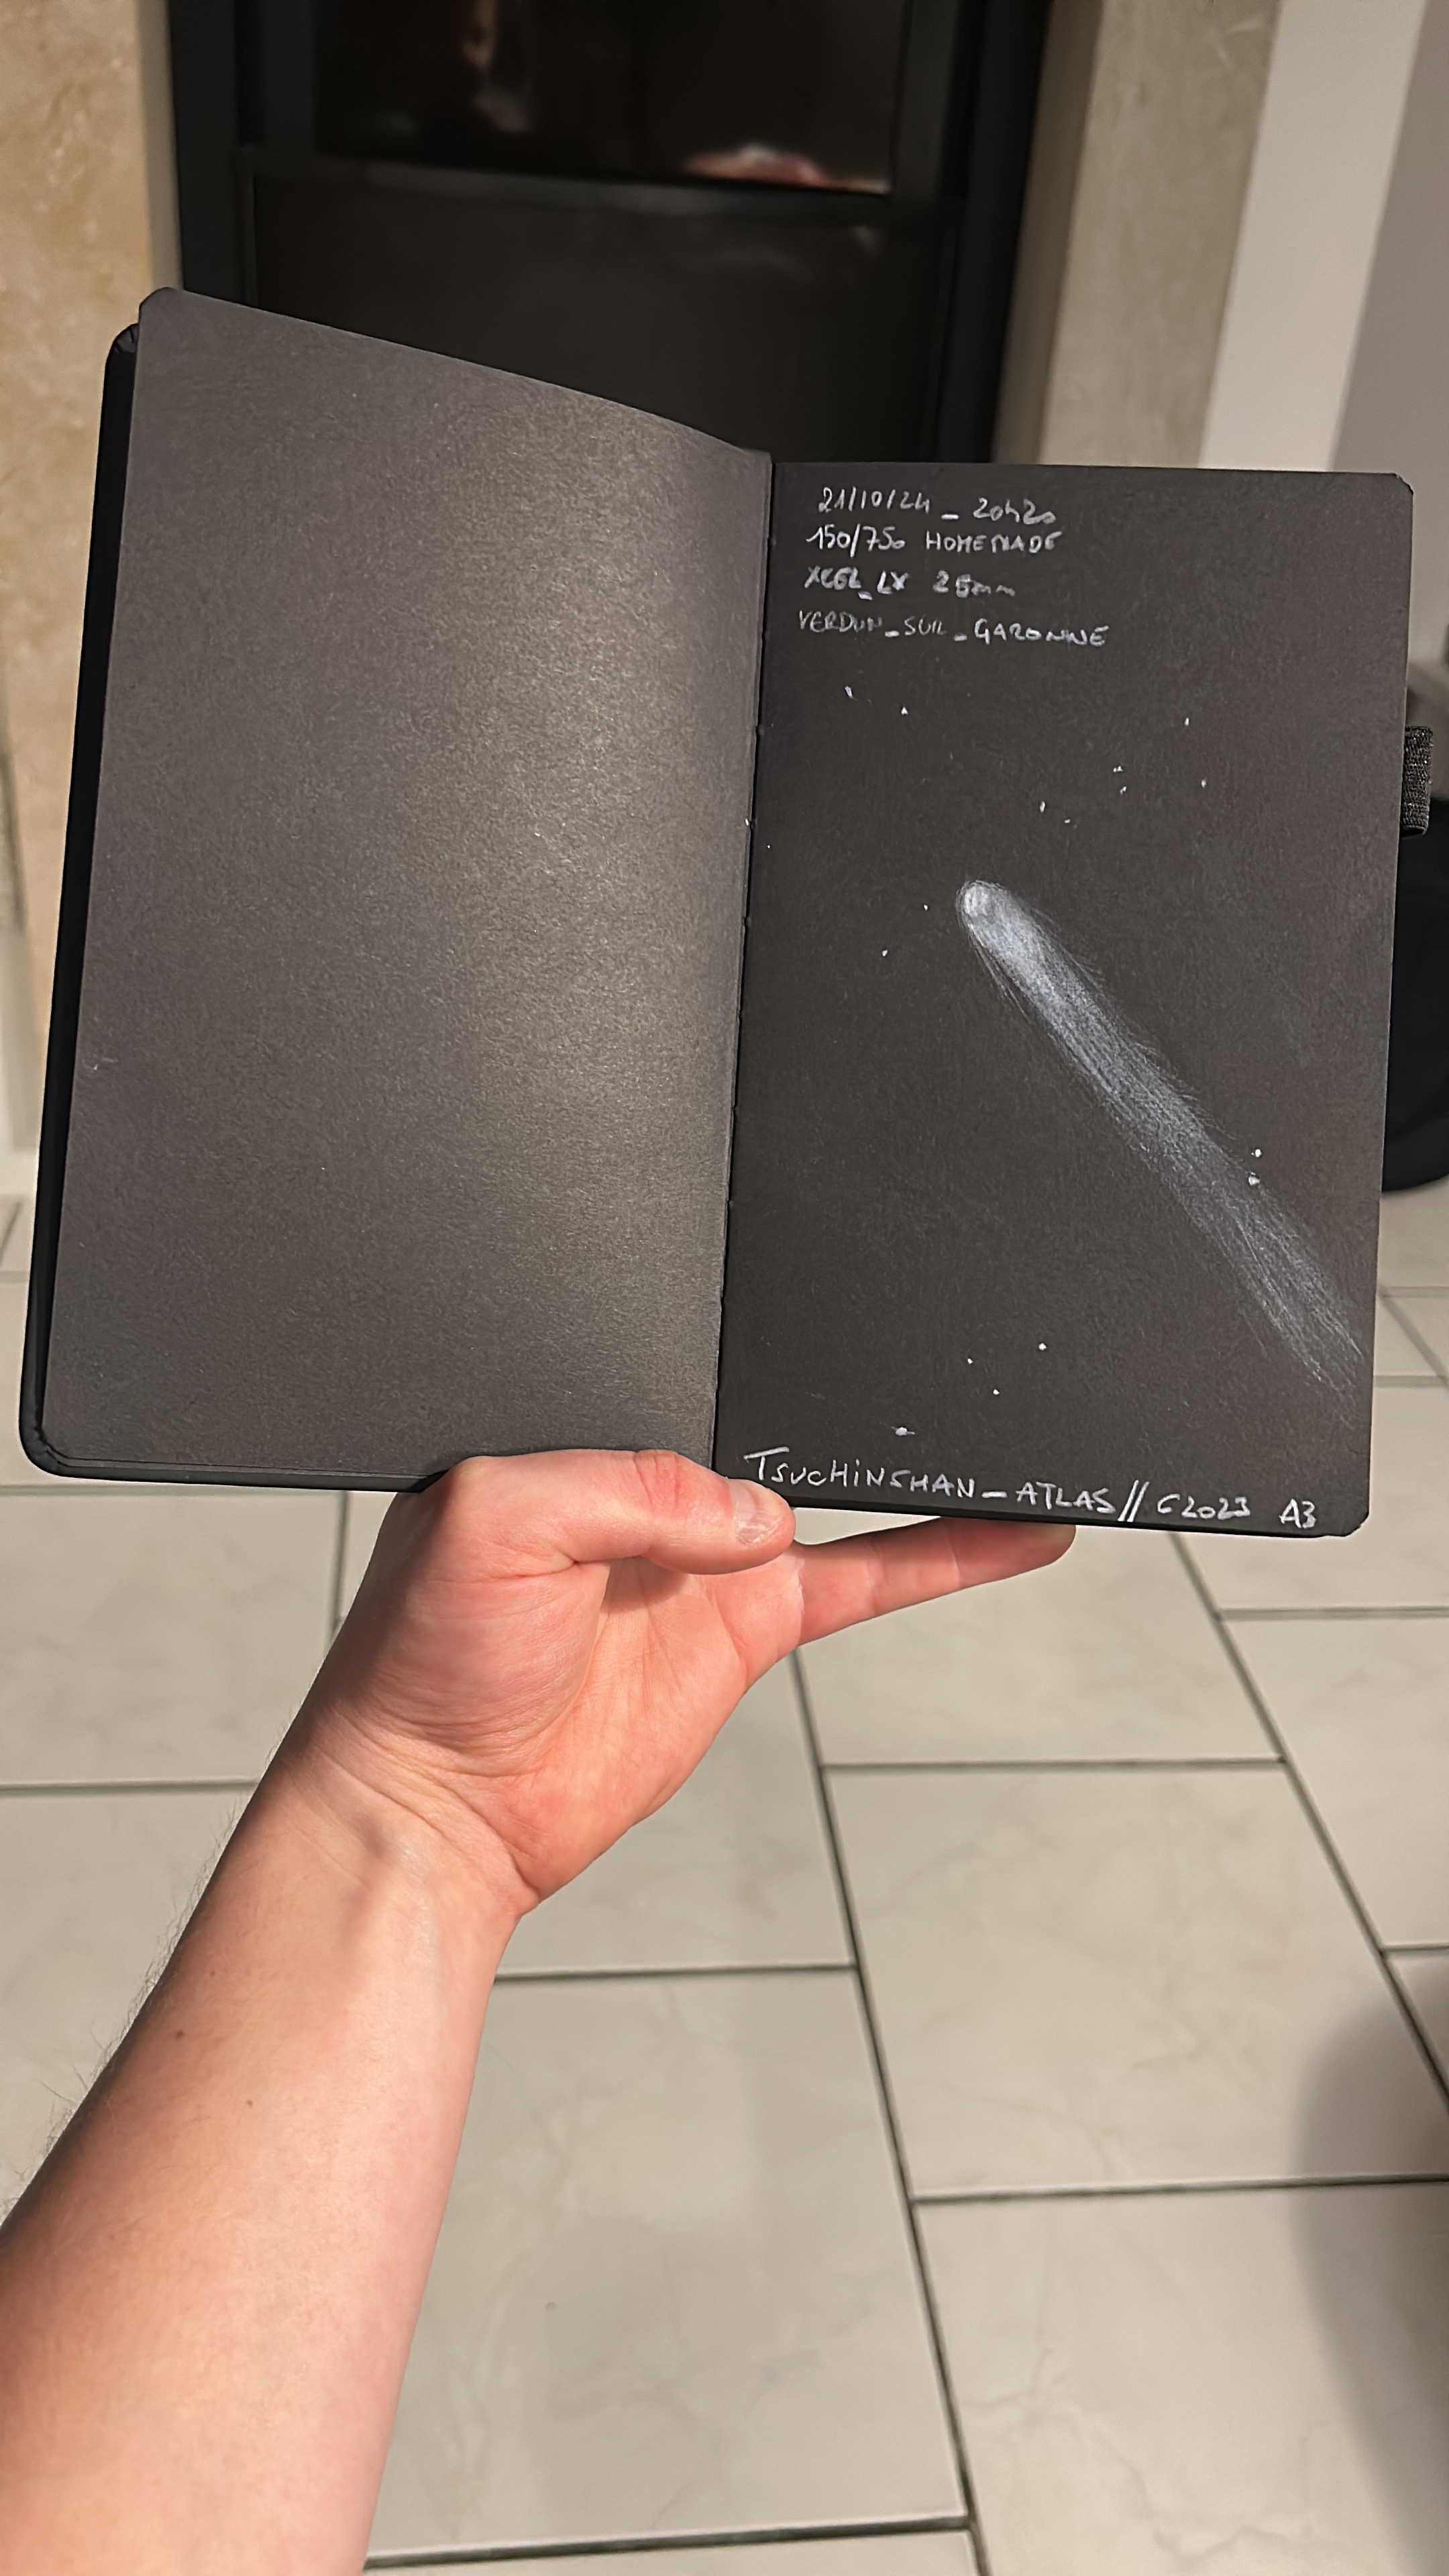 21/10/24 _ 20h20
150/750 HOMEMADE
XCEL_LX 25mm
VERDUN_SUR_GARONNE
TSUCHINSHAN-ATLAS // C2023 A3